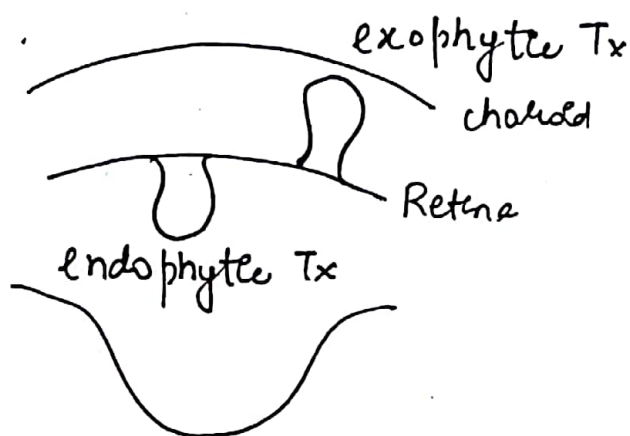 exophytic Tx
choroid
Retina
endophytic Tx